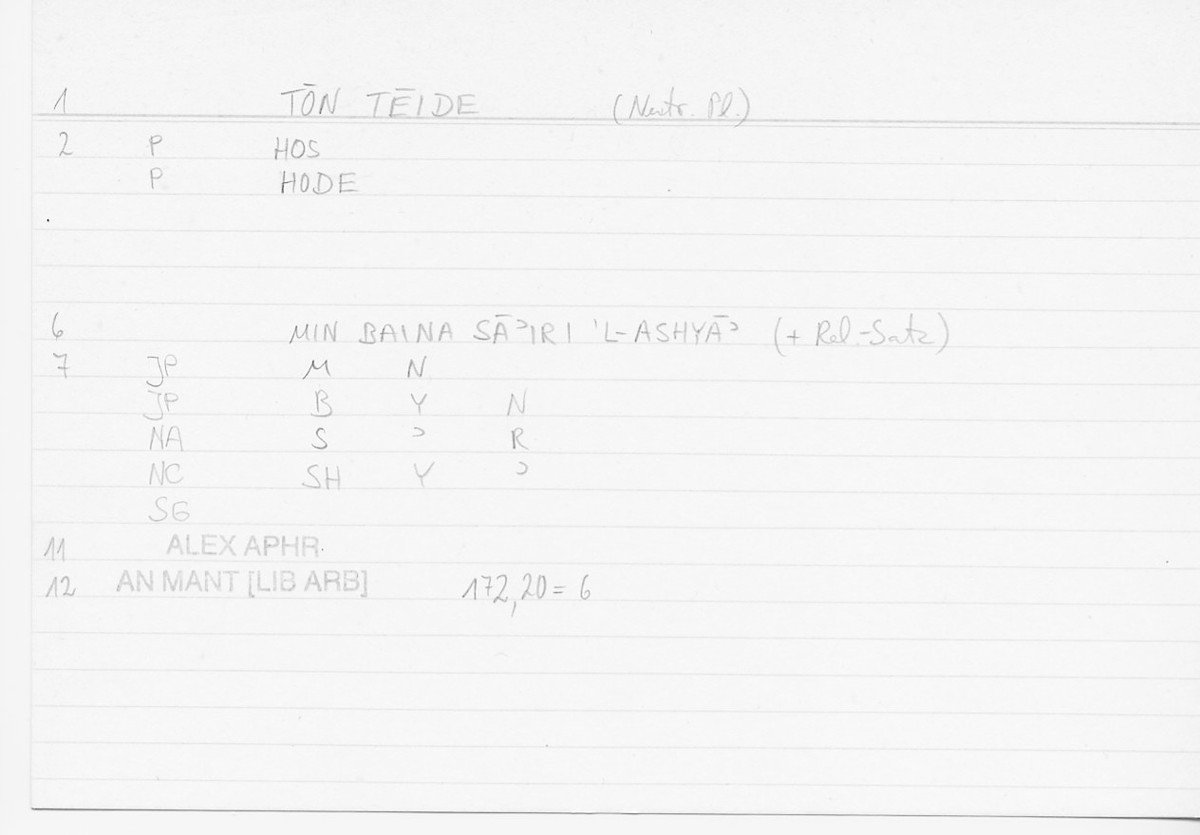 1 TŌN TĒIDE (Neutr. Pl.)
2 P HOS
P HODE
6 MIN BAINA SĀʾIRI 'L-ASHYĀʾ (+ Rel.-Satz)
7 JP M N
JP B Y N
NA S ʾ R
NC SH Y ʾ
SG
11 ALEX APHR.
12 AN MANT [LIB ARB] 172,20 = 6